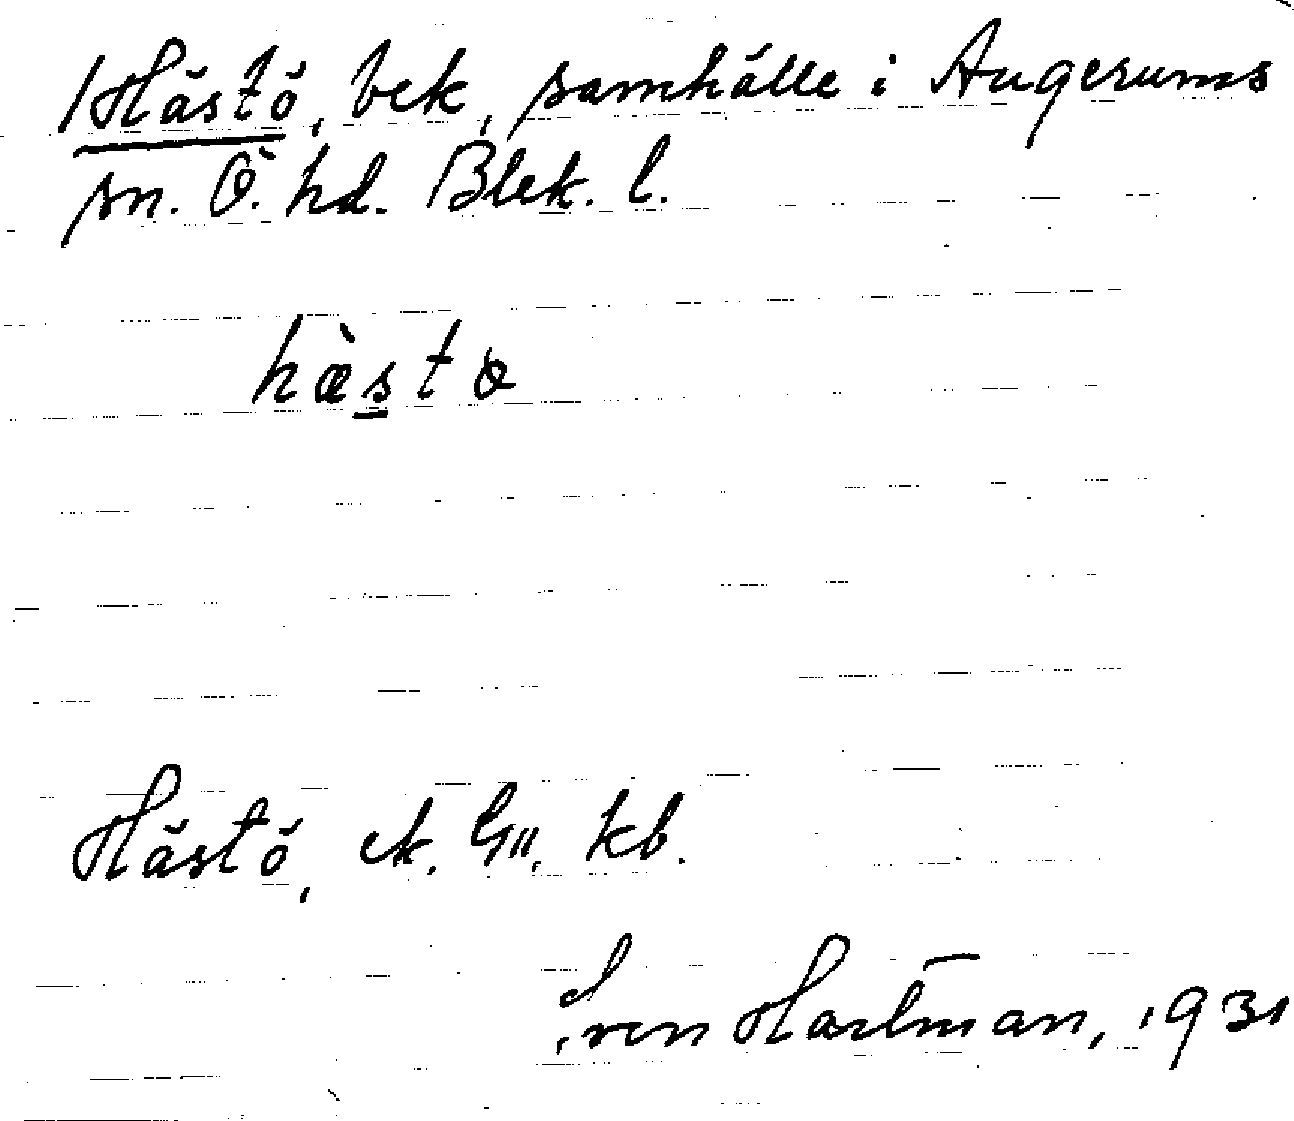 Hästö, bek, samhälle i Augerums
sn. Ö. hd. Blek. l.
hæ̀stø
Hästö, ek. kb.
Sven Hartman, 1931